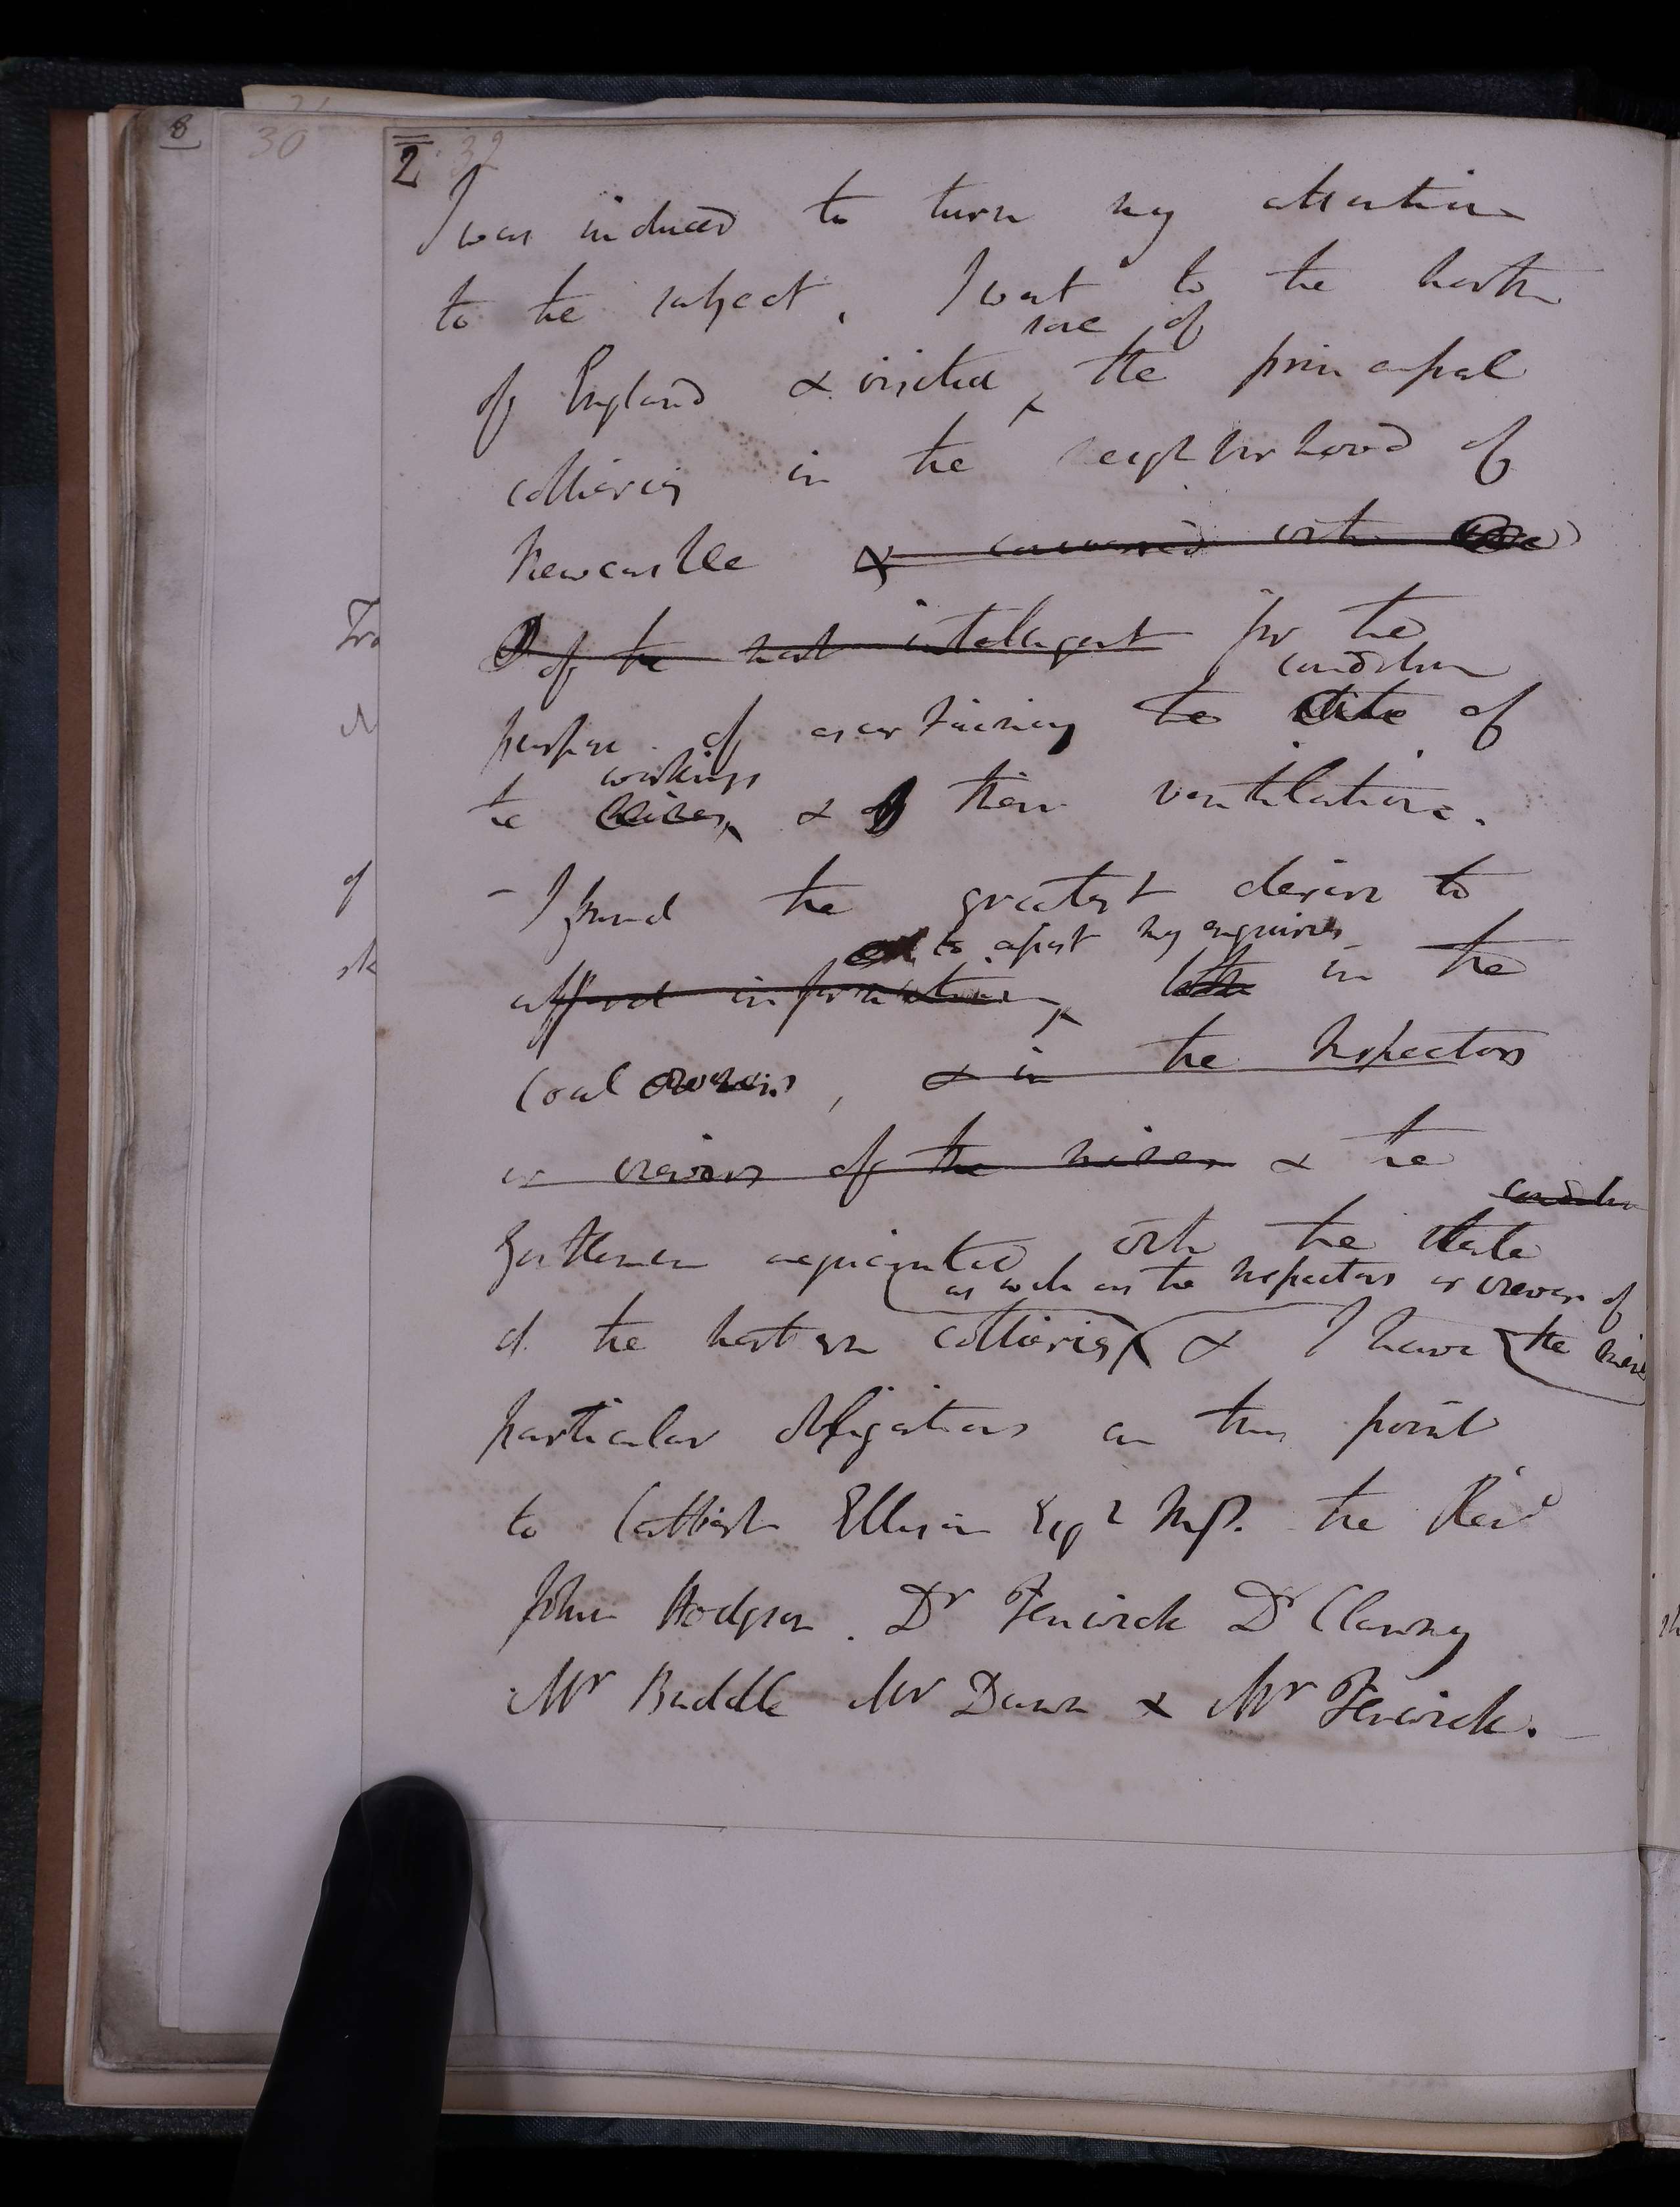 8
30
2 32
I was induced to turn my attention
to the subject. I went to the north
some of
of England & visited the principal
collieries in the neighbourhood of
Newcastle & conversed with some
of the most intelligent for the
condition
purpose of ascertaining the state of
workings
the mines & of their ventilation.
- I found the greatest desire to
to assist my enquiries
afford information both in the
Coal owners, & in the Inspectors
or viewers of the mines & the
condition
Gentlemen acquainted with the state
as well as the Inspectors or viewers of
of the northern collieries & I have the mines
particular obligations on this point
to Cuthbert Ellison Esqr M.P. the Revd
John Hodgson. Dr Fenwick Dr Clanny
Mr Buddle Mr Dunn & Mr Fenwick.